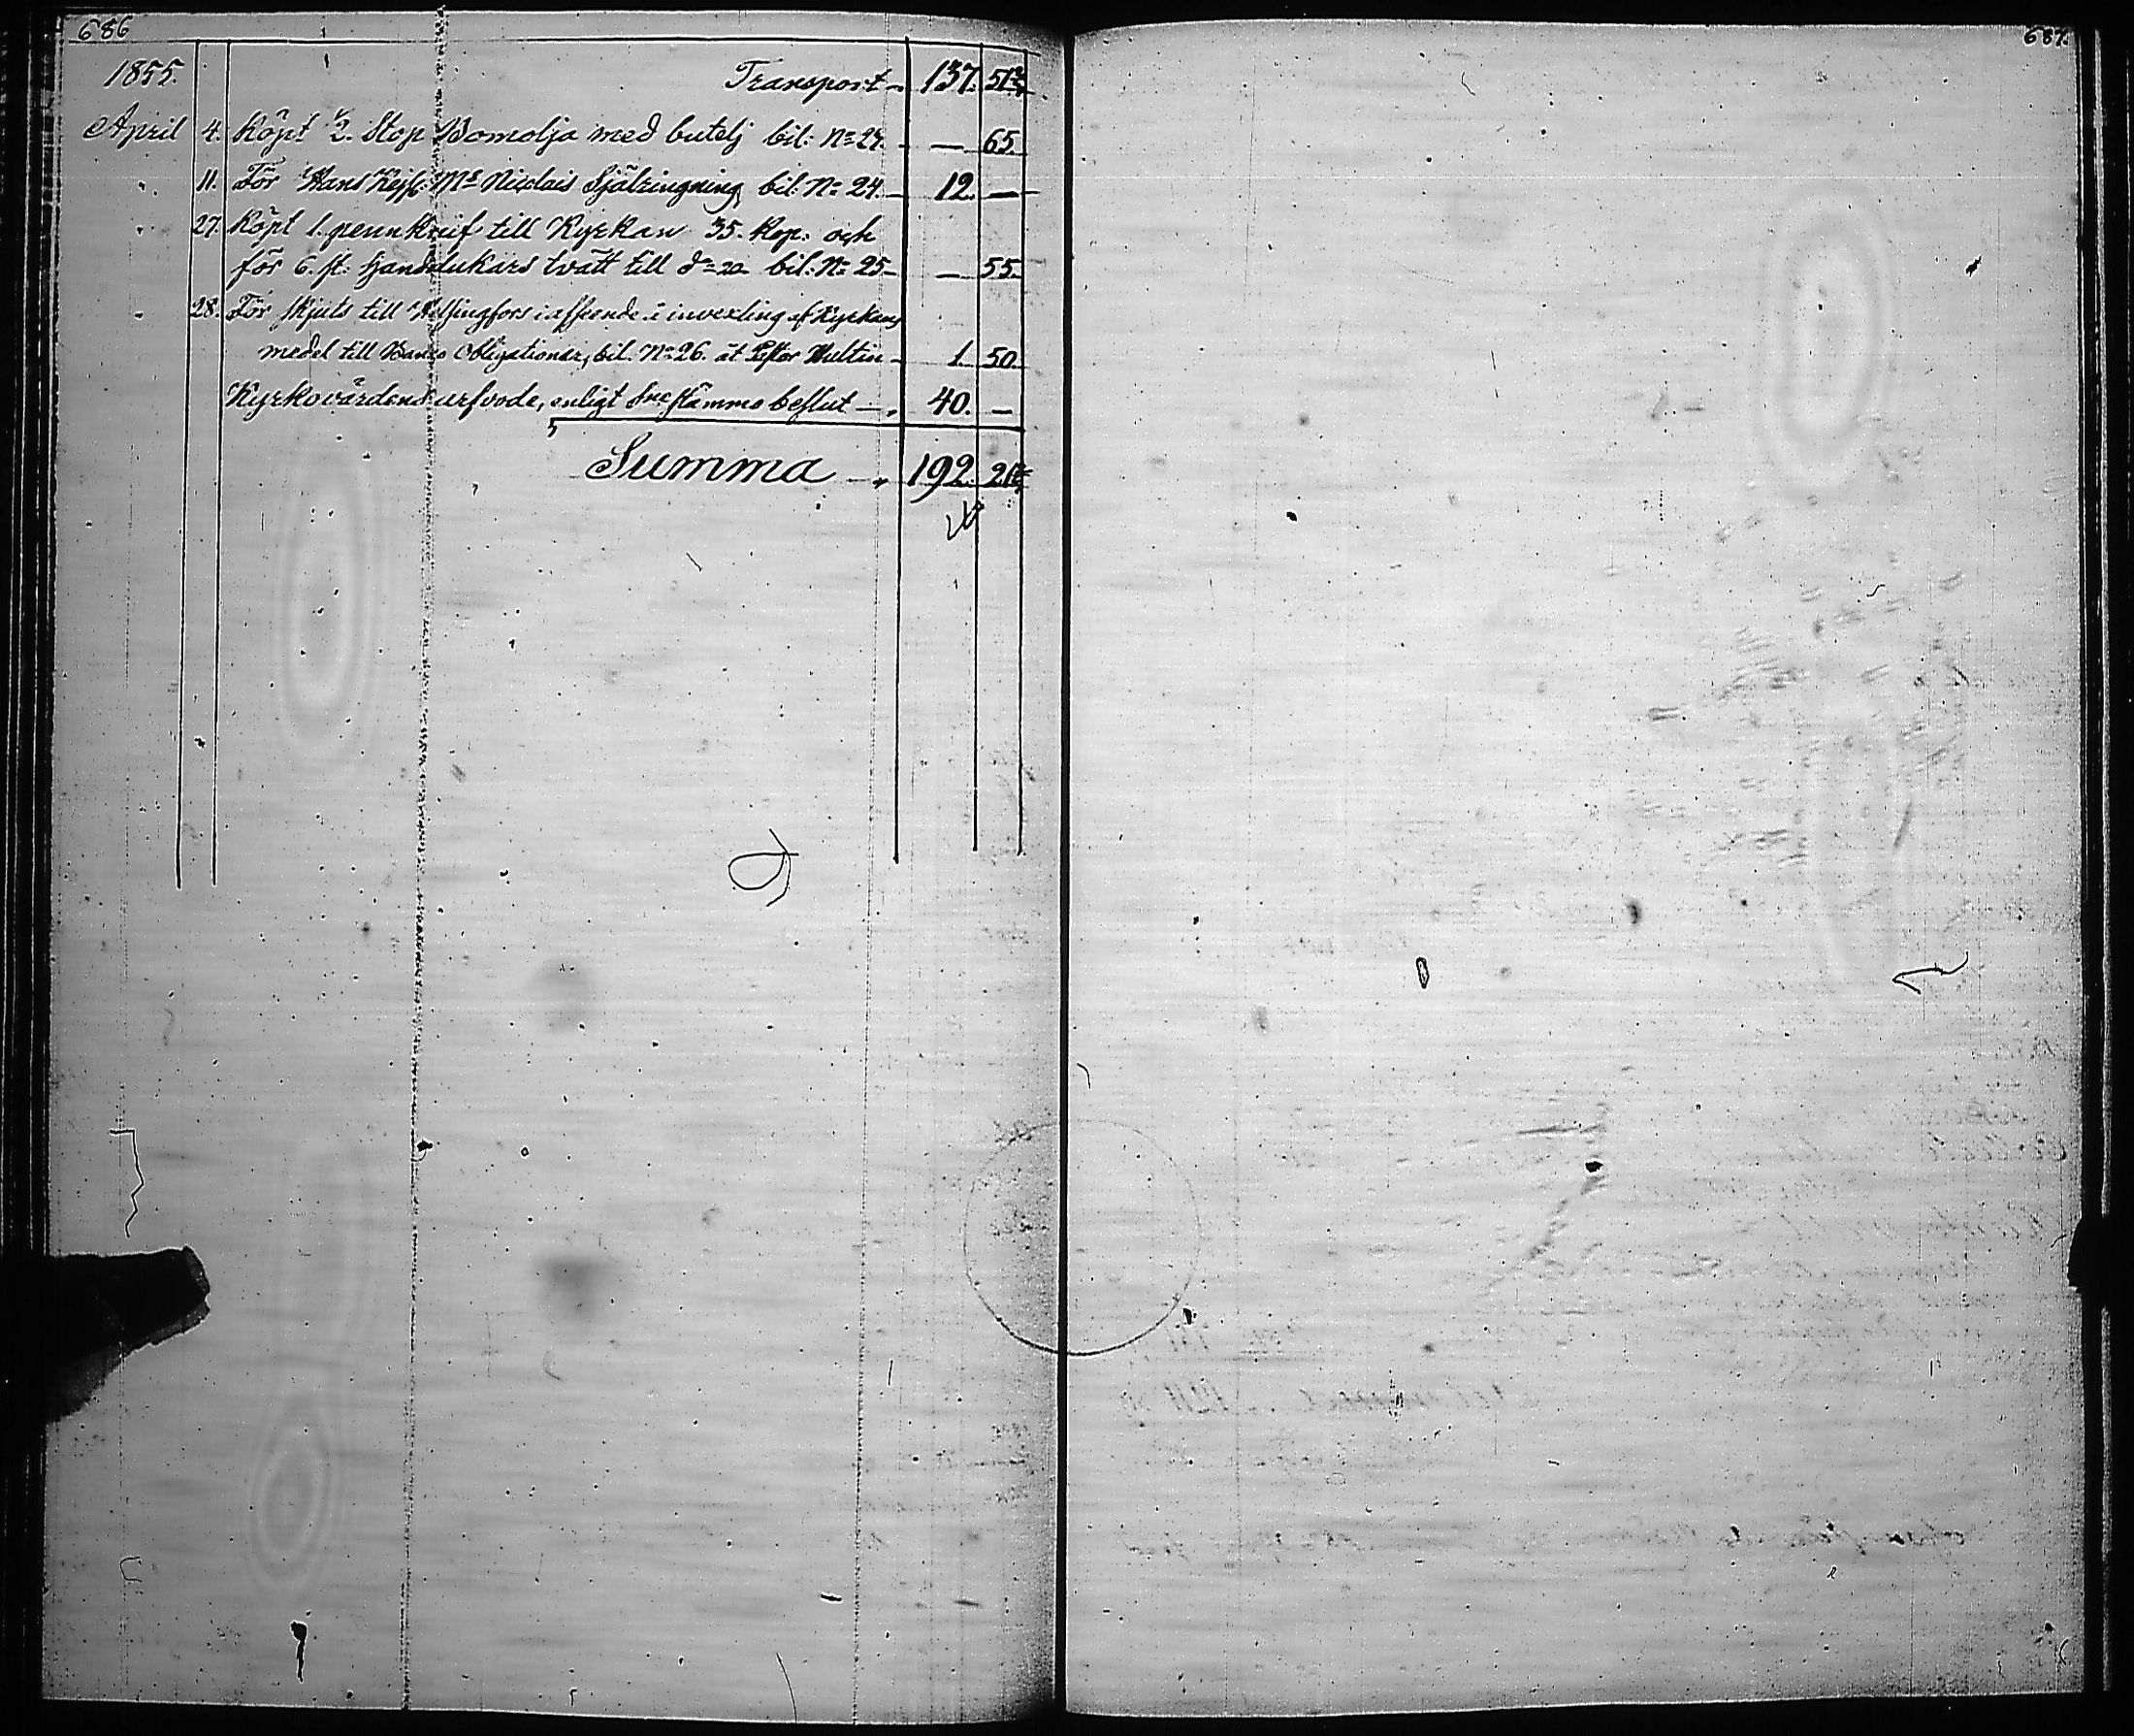 686
1855. Transport 137. 51 3/7
April 4. Köpt 1/2. Stop Bomolja med butelj bil: No 23. — 65.
" 11. För Hans Kejsl. Mts Nicolais Själringning, bil. No 24. 12. —
" 27. Köpt 1. pennknif till Kyrkan 35. Kop: och
för 6. st: handdukars tvätt till do 20 bil: No 25 — 55.
" 28. För skjuts till Helsingfors i afseende å invexling af Kyrkans
medel till Banco Obligationer, bil. No 26. åt Pastor Hultin 1. 50.
Kyrkovärdens arfvode, enligt Sne stämmo beslut 40. —
Summa 192. 21 3/7
687.